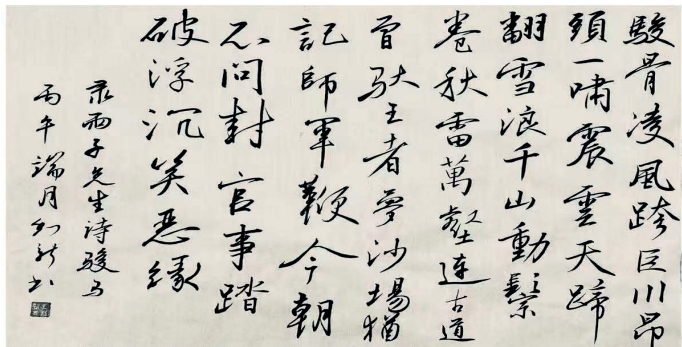 駿骨凌風跨巨川昂
頭一嘯震雲天蹄
翻雪浪千山動鬃
卷秋雷萬壑連古道
曾馱王者夢沙場猶
記師軍鞭今朝
不問封官事踏
破浮沉笑惡緣
录雨子先生诗骏马
丙午端月 书